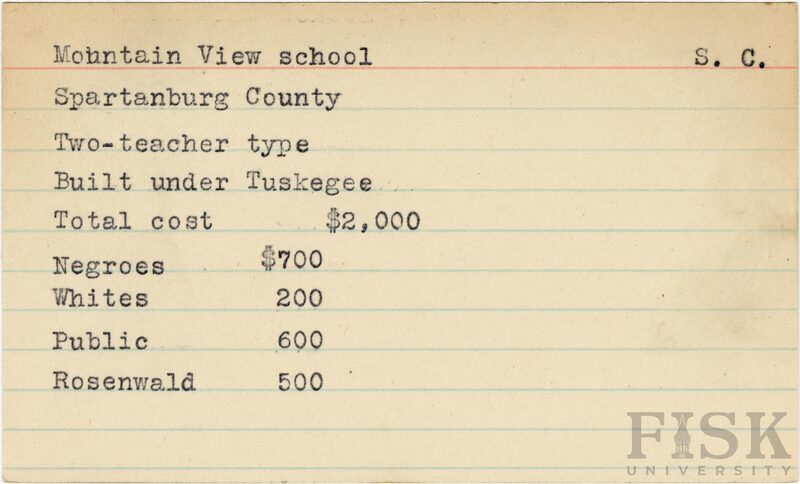 Mountain View school S. C.
Spartanburg County
Two-teacher type
Built under Tuskegee
Total cost $2,000
Negroes $700
Whites 200
Public 600
Rosenwald 500
FISK
UNIVERSITY